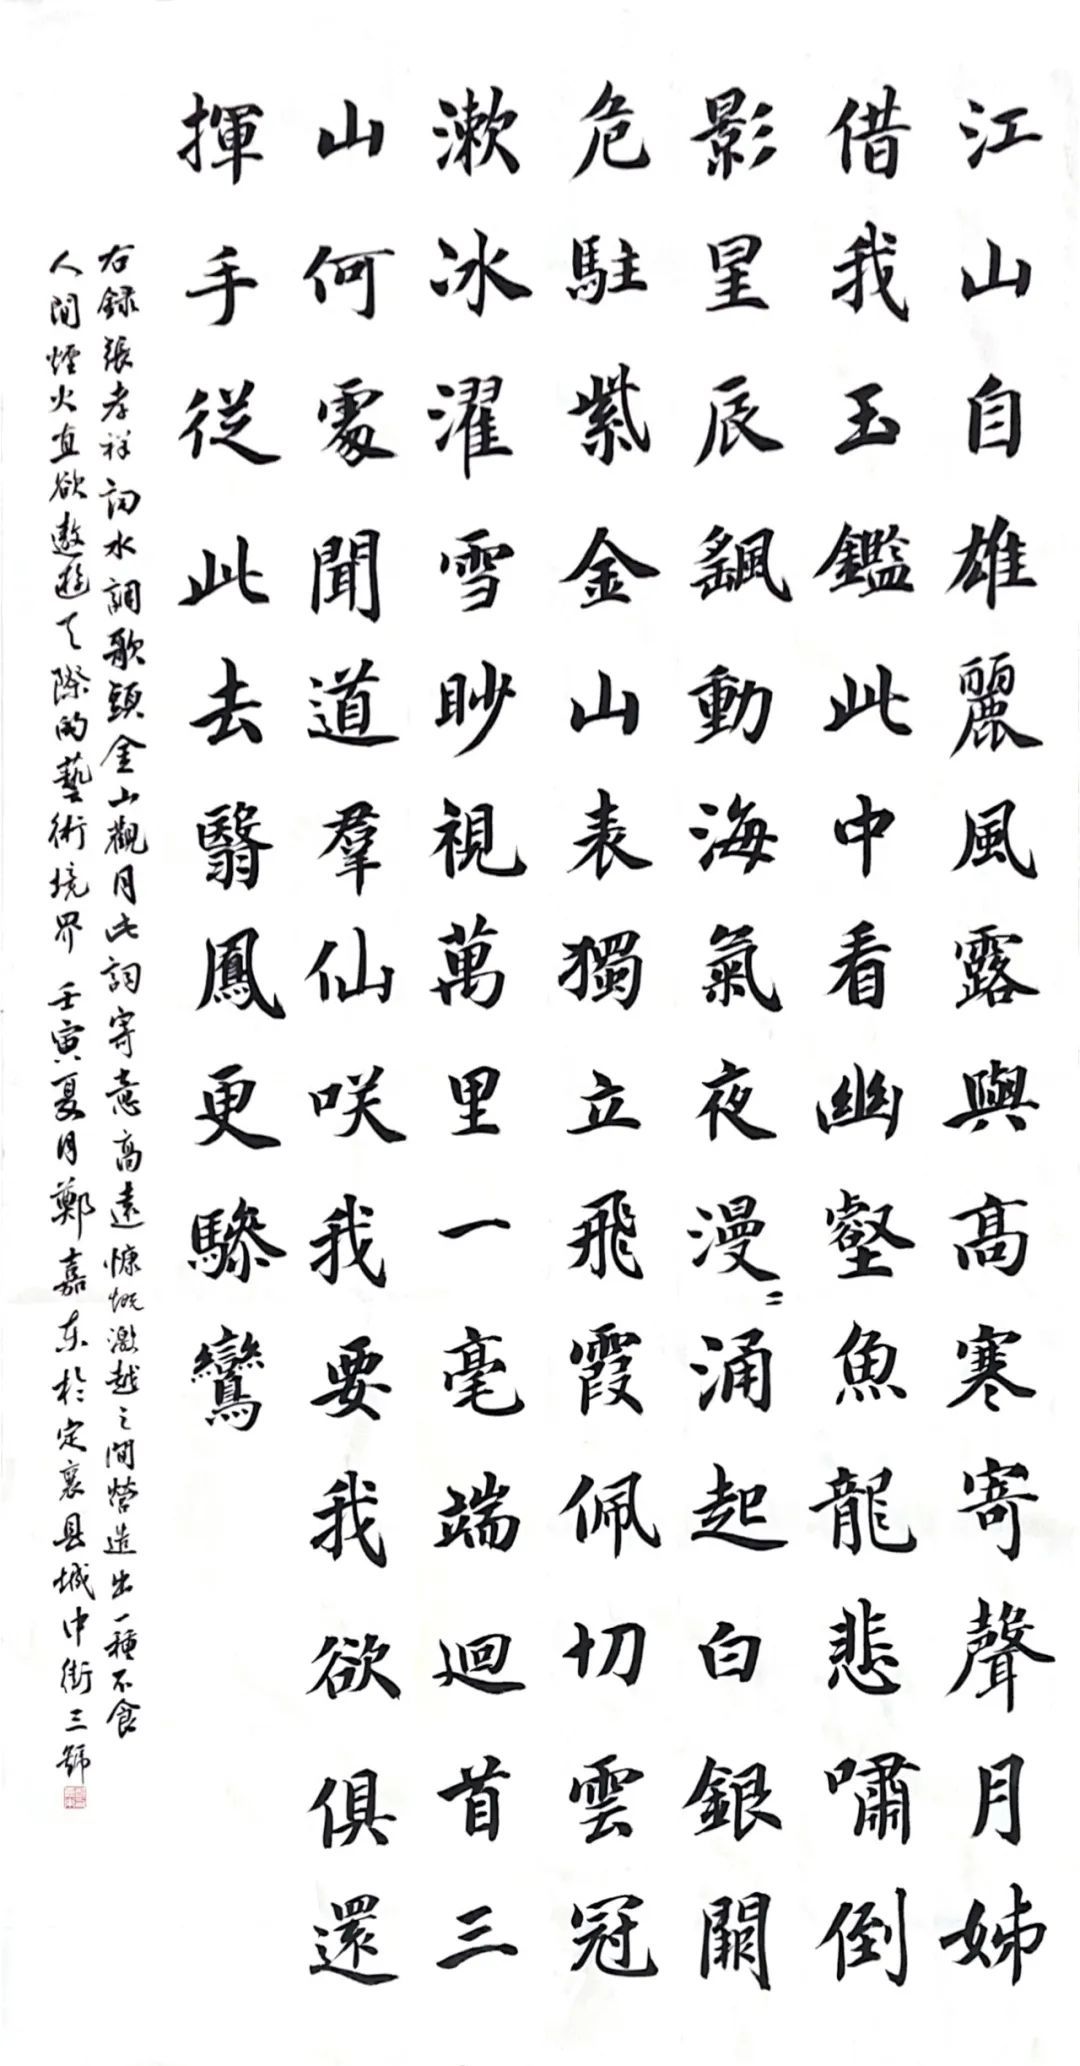 江山自雄麗風露與高寒寄聲月姊
借我玉鑑此中看幽壑魚龍悲嘯倒
影星辰颻動海氣夜漫〻涌起白銀闕
危駐紫金山表獨立飛霞佩切雲冠
漱冰濯雪眇視萬里一毫端迴首三
山何處聞道羣仙咲我要我欲俱還
揮手從此去翳鳳更驂鸞
右録張孝祥詞水調歌頭金山觀月此詞寄意高遠慷慨激越之間營造出一種不食
人間煙火直欲遨遊天際的藝術境界 壬寅夏月鄭嘉东於定襄县城中街三號